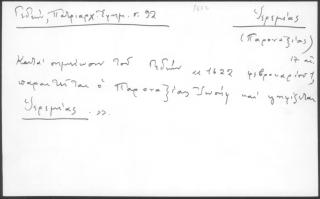 Γεδεών, Πατριαρχ. Εφημ. σ. 92
1622
Ιερεμίας
(Παροναξίας)
17 αἰ.
Κατά σημείωσιν τοῦ Γεδεών « 1622 φεβρουαρίου
παραιτεῖται ὁ Παροναξίας Ἰωσήφ καί ψηφίζεται
Ιερεμίας. ».